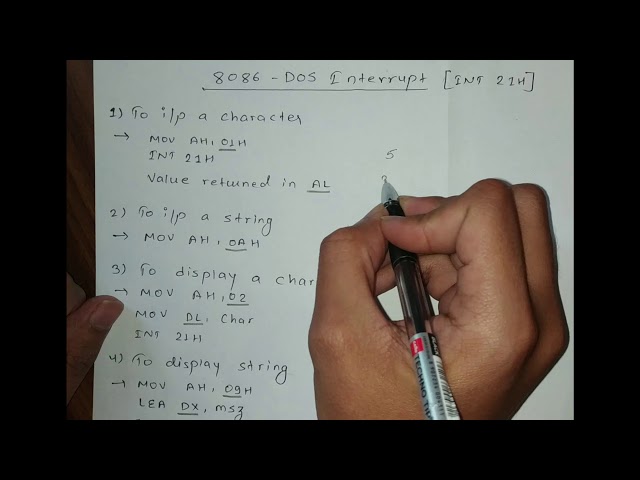 8086 - DOS Interrupt [INT 21H]
1) To i/p a character
→ MOV AH, 01H
INT 21H
Value returned in AL
5
2) To i/p a string
→ MOV AH, 0AH
3) To display a char
→ MOV AH, 02
MOV DL, Char
INT 21H
4) To display string
→ MOV AH, 09H
LEA DX, msg